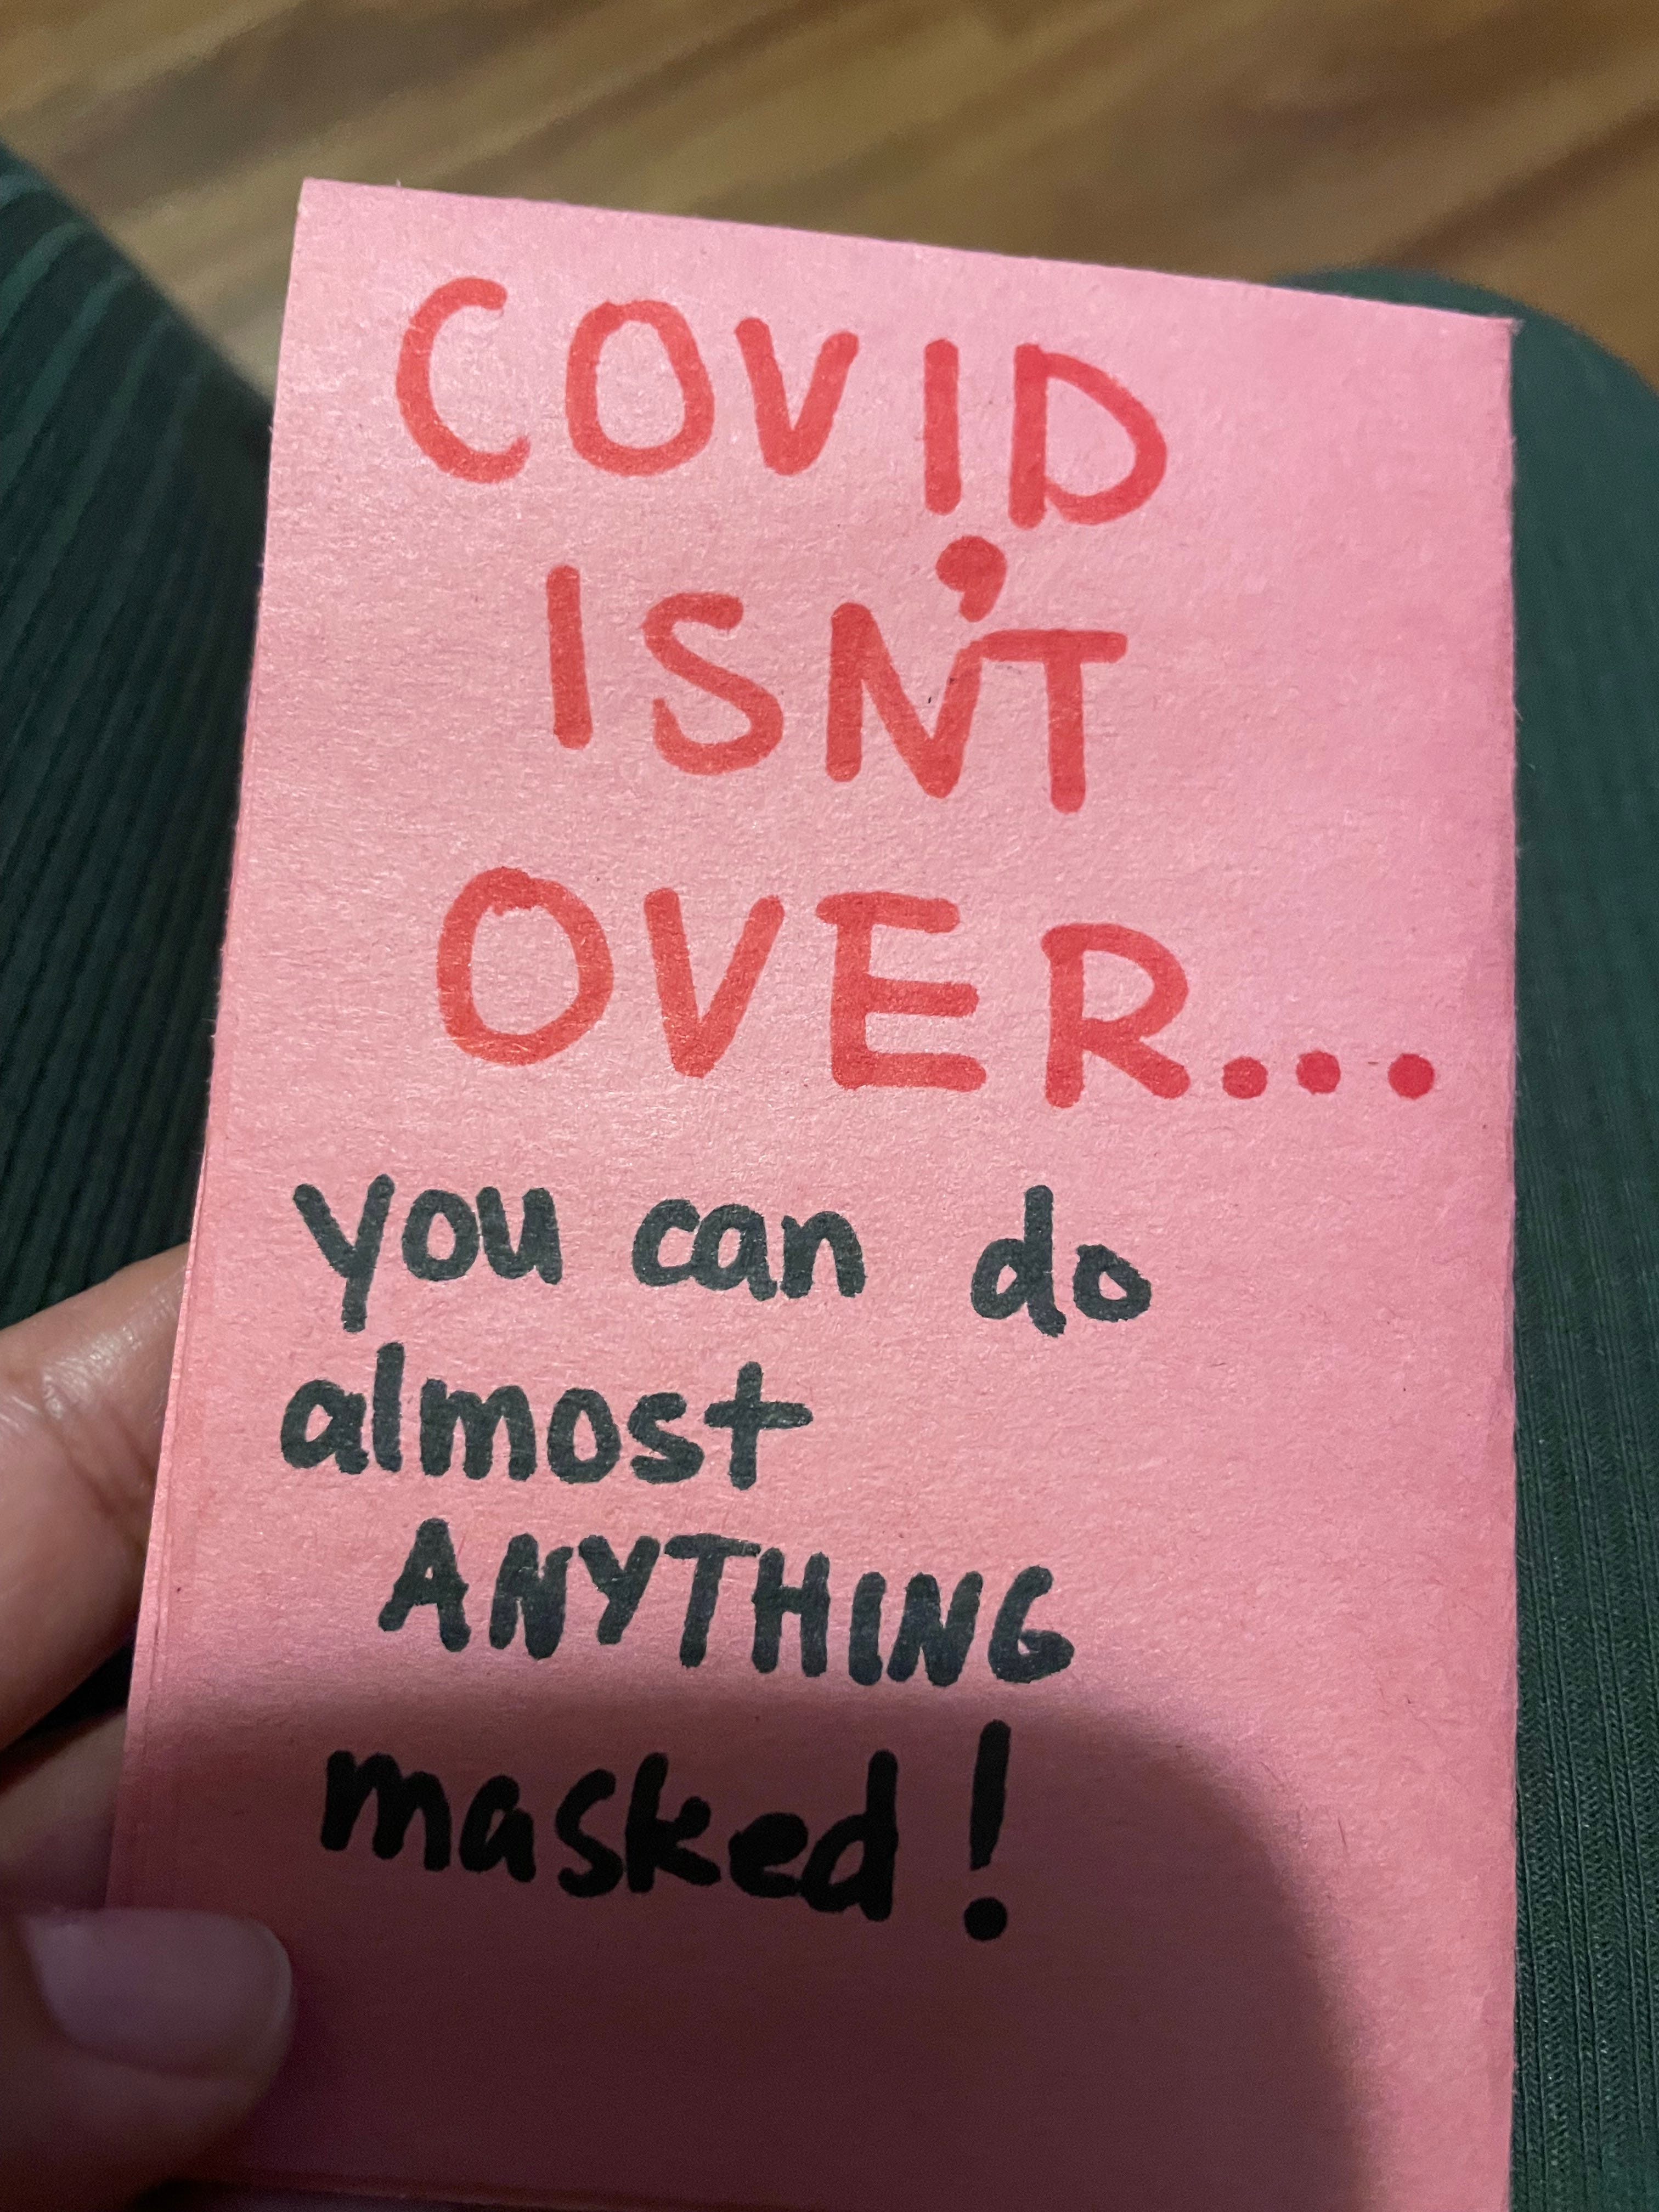 COVID
ISN'T
OVER...
you can do
almost
ANYTHING
masked!